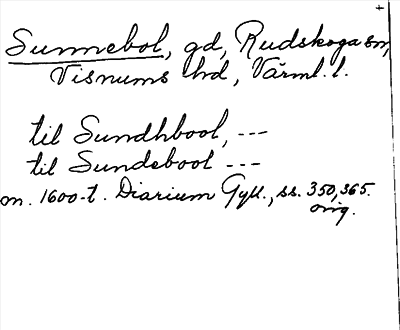 Sunnebol, gd, Rudskoga sn,
Visnums hd, Värml. l.
til Sundhbool, ---
til Sundebool ---
on. 1600-t. Diarium Gyll., ss. 350, 365.
orig.